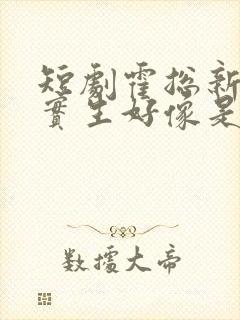 短劇霍總新
實生好像是
數據大帝